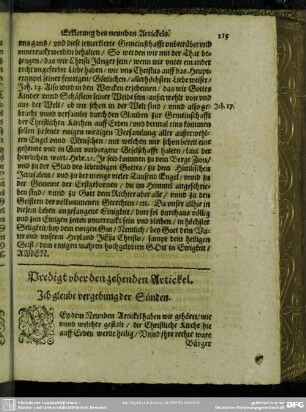 Erklerung des neundten Artickels. 215
uns gantz / und diese jetzerklerte Gemeinschafft unbetrübet und
unverruckt werden behalten / So werden wir mit der That be-
zeugen / das wir Christi Jünger sein / wenn wir unter einander
rechte ungeferbte Liebe haben / wie uns Christus auff das Heupt-
Joh. 13. Also wird in den Wercken erscheinen / das wir Gottes
Kinder unnd Schäflein seiner Weide sein / ausserwehlt von und
aus der Welt / ob wir schon in der Welt sind / unnd also ge-
Joh. 17.
bracht unnd versamlet durch den Glauben zur Gemeinschafft
der Christlichen Kirchen auff Erden / unnd dermal eins kommen
sollen zu jener ewigen wirdigen Versamlung aller ausserwehl-
ten Engel unnd Menschen / mit welchen wir schon bereit eine
geheime und in Gott verborgene Gesellschafft haben / laut der
herrlichen wort / Hebr. 12. Ir seid kommen zu dem Berge Zion /
und zu der Stad des lebendigen Gottes / zu dem Himlischen
Jerusalem / und zu der menge vieler Tausend Engel / unnd zu
der Gemeine der Erstgebornen / die im Himmel angeschrie-
ben sind / unnd zu Gott dem Richter uber alle / und zu den
Geistern der volkommenen Gerechten / etc. Da unser allhier in
diesem Leben angefangene Einigkeit / dort sol durchaus völlig
und zun Ewigen zeiten unverruckt sein und bleiben / in höchster
Seligkeit / bey dem ewigen Gut / Nemlich / bey Gott dem Va-
ter und unserm Heyland Jhesu Christo / sampt dem heiligen
Geist / dem einigen wahren hochgelobten Gott in Ewigkeit /
AMEN.
Predigt uber den zehenden Artickel.
Ich gleube vergebung der Sünden.
BEy dem Neundten Artickel haben wir gehöret / wie
unnd welcher gestalt / die Christliche Kirche hie
auff Erden werde heilig / Unnd ihre rechte ware
Bürger